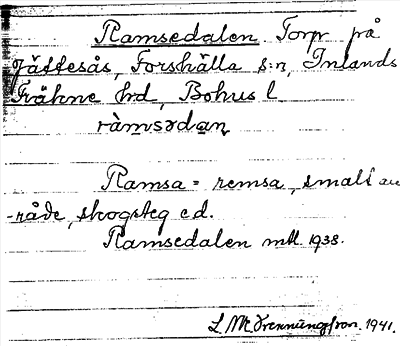 Ramsedalen Torp på
Jättesås, Forshälla s:n, Inlands
Fräkne hd, Bohus l.
ràmsədan
Ramsa = remsa, smalt
-råde, skogsteg e d.
Ramsedalen mtl. 1938.
L. M. 1941.